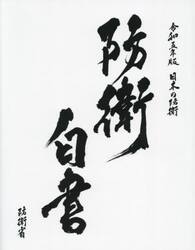 令和五年版
日本の防衛
防衛
白書
防衛省